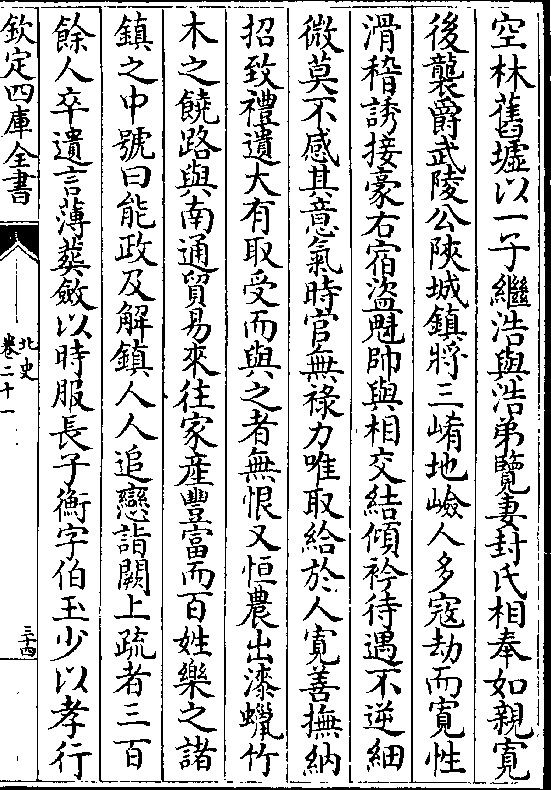 空林舊墟以一子繼浩與浩弟覽妻封氏相奉如親寛
後襲爵武陵公陝城鎮將三崤地嶮人多寇劫而寛性
滑稽誘接豪右宿盜魁帥與相交結傾衿待遇不逆細
微莫不感其意氣時官無祿力唯取給於人寛善撫納
招致禮遺大有取受而與之者無恨又恒農出漆蠟竹
木之饒路與南通貿易來往家産豐富而百姓樂之諸
鎮之中號曰能政及解鎮人人追戀詣闕上疏者三百
餘人卒遺言薄葬斂以時服長子衡字伯玉少以孝行
欽定四庫全書
北史
卷二十一
三十四